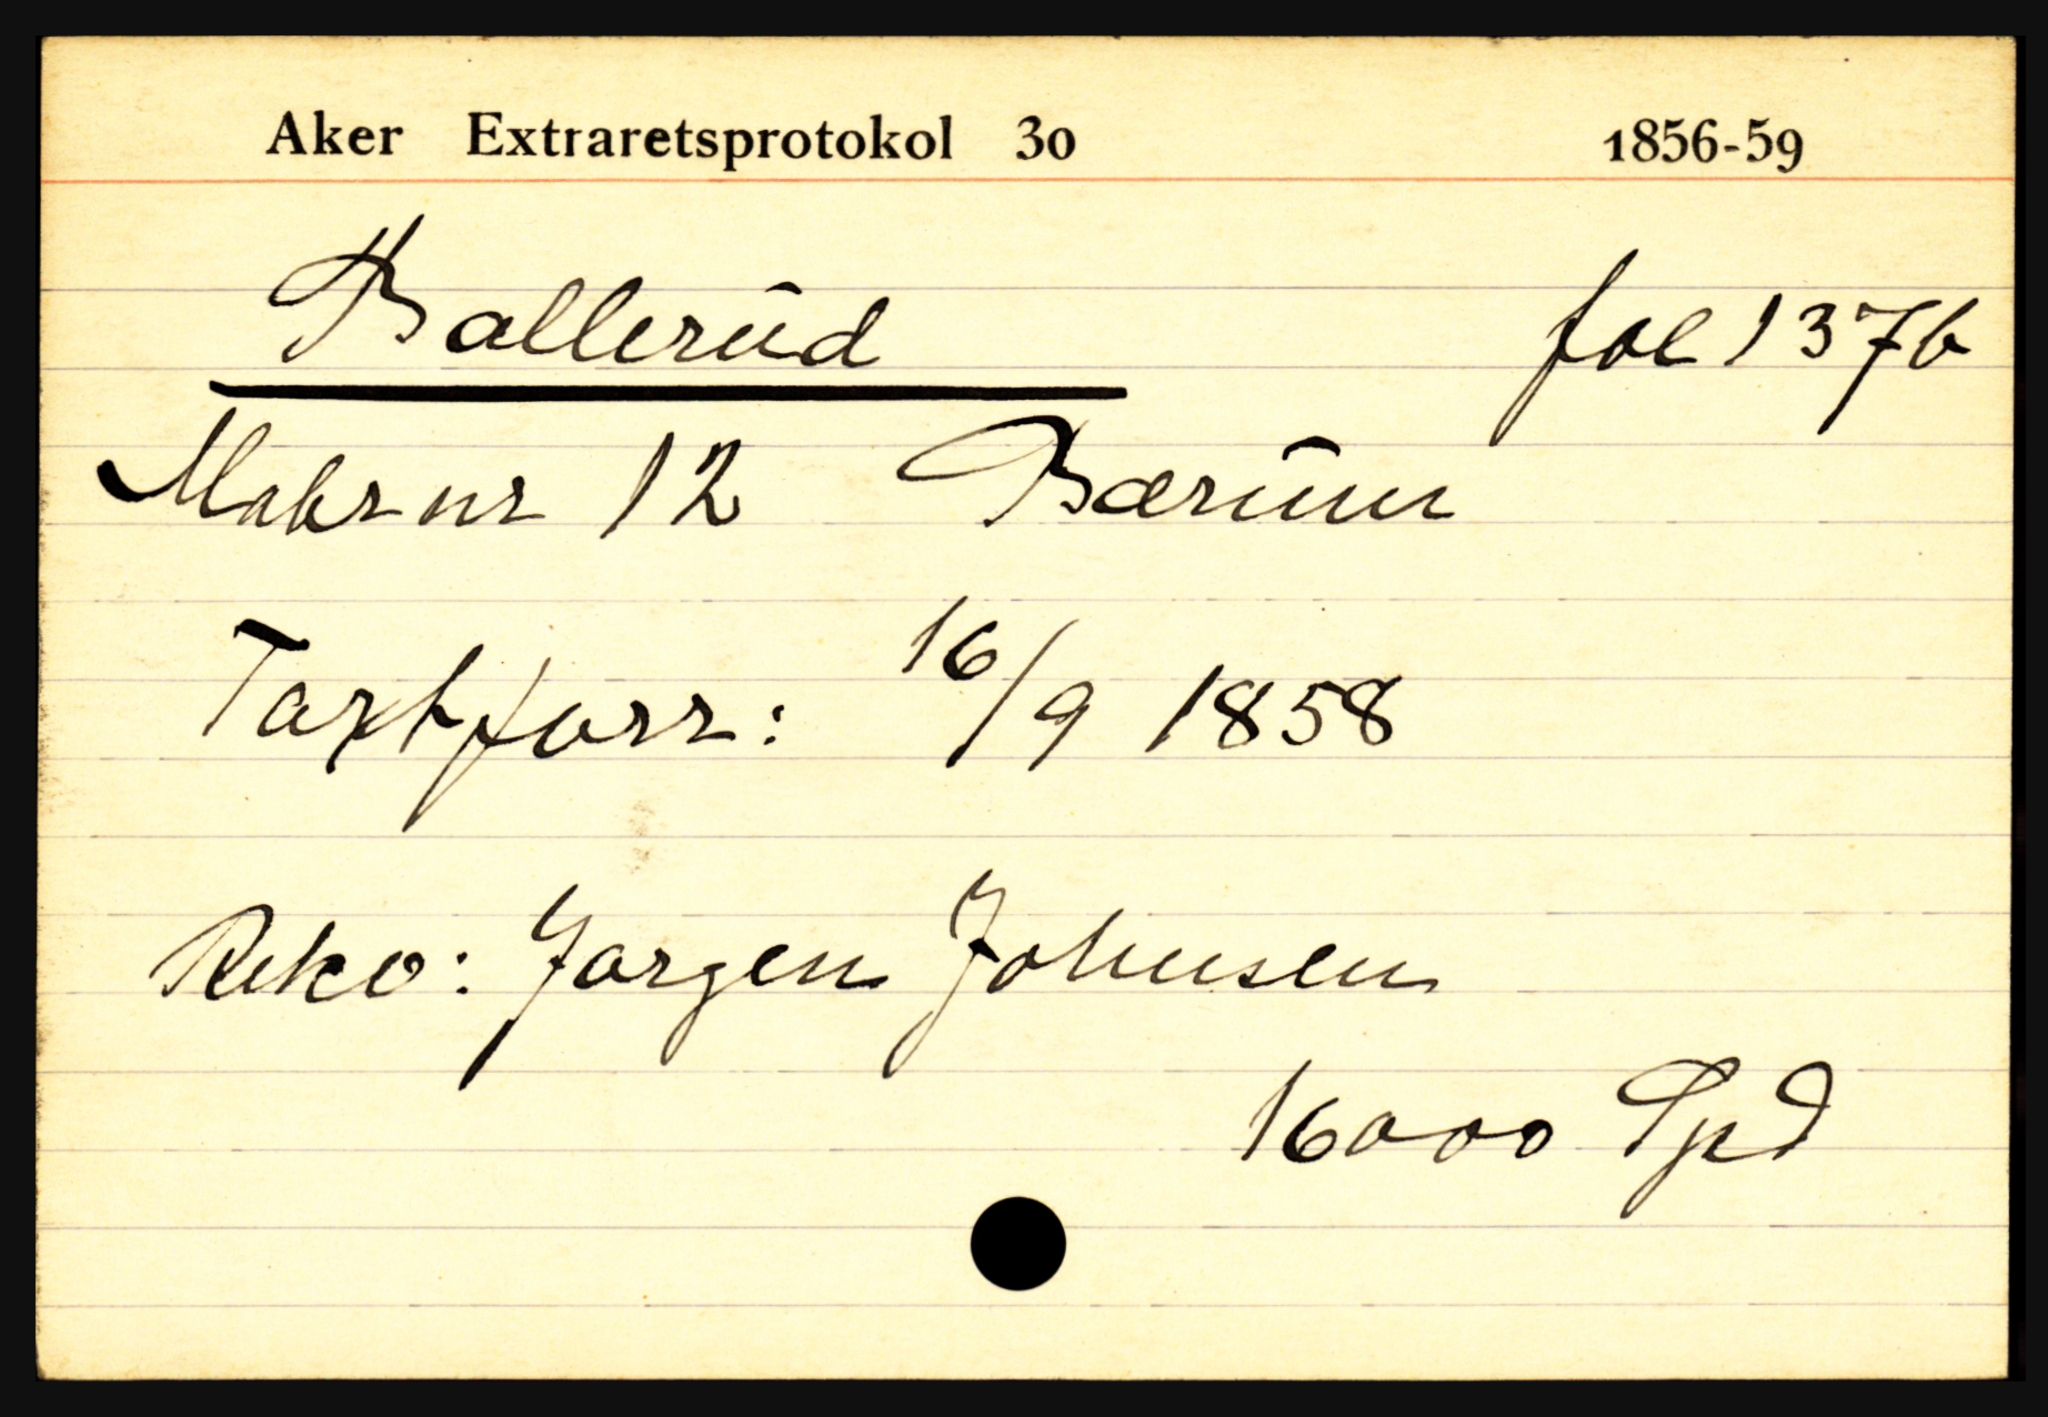 Aker Extraretsprotokol 30 1856-59
Ballerud fol 137b
Matr nr 12 Bærum
Taxtforr: 16/9 1858
Rekv: Jørgen Johnsen
16000 Spd